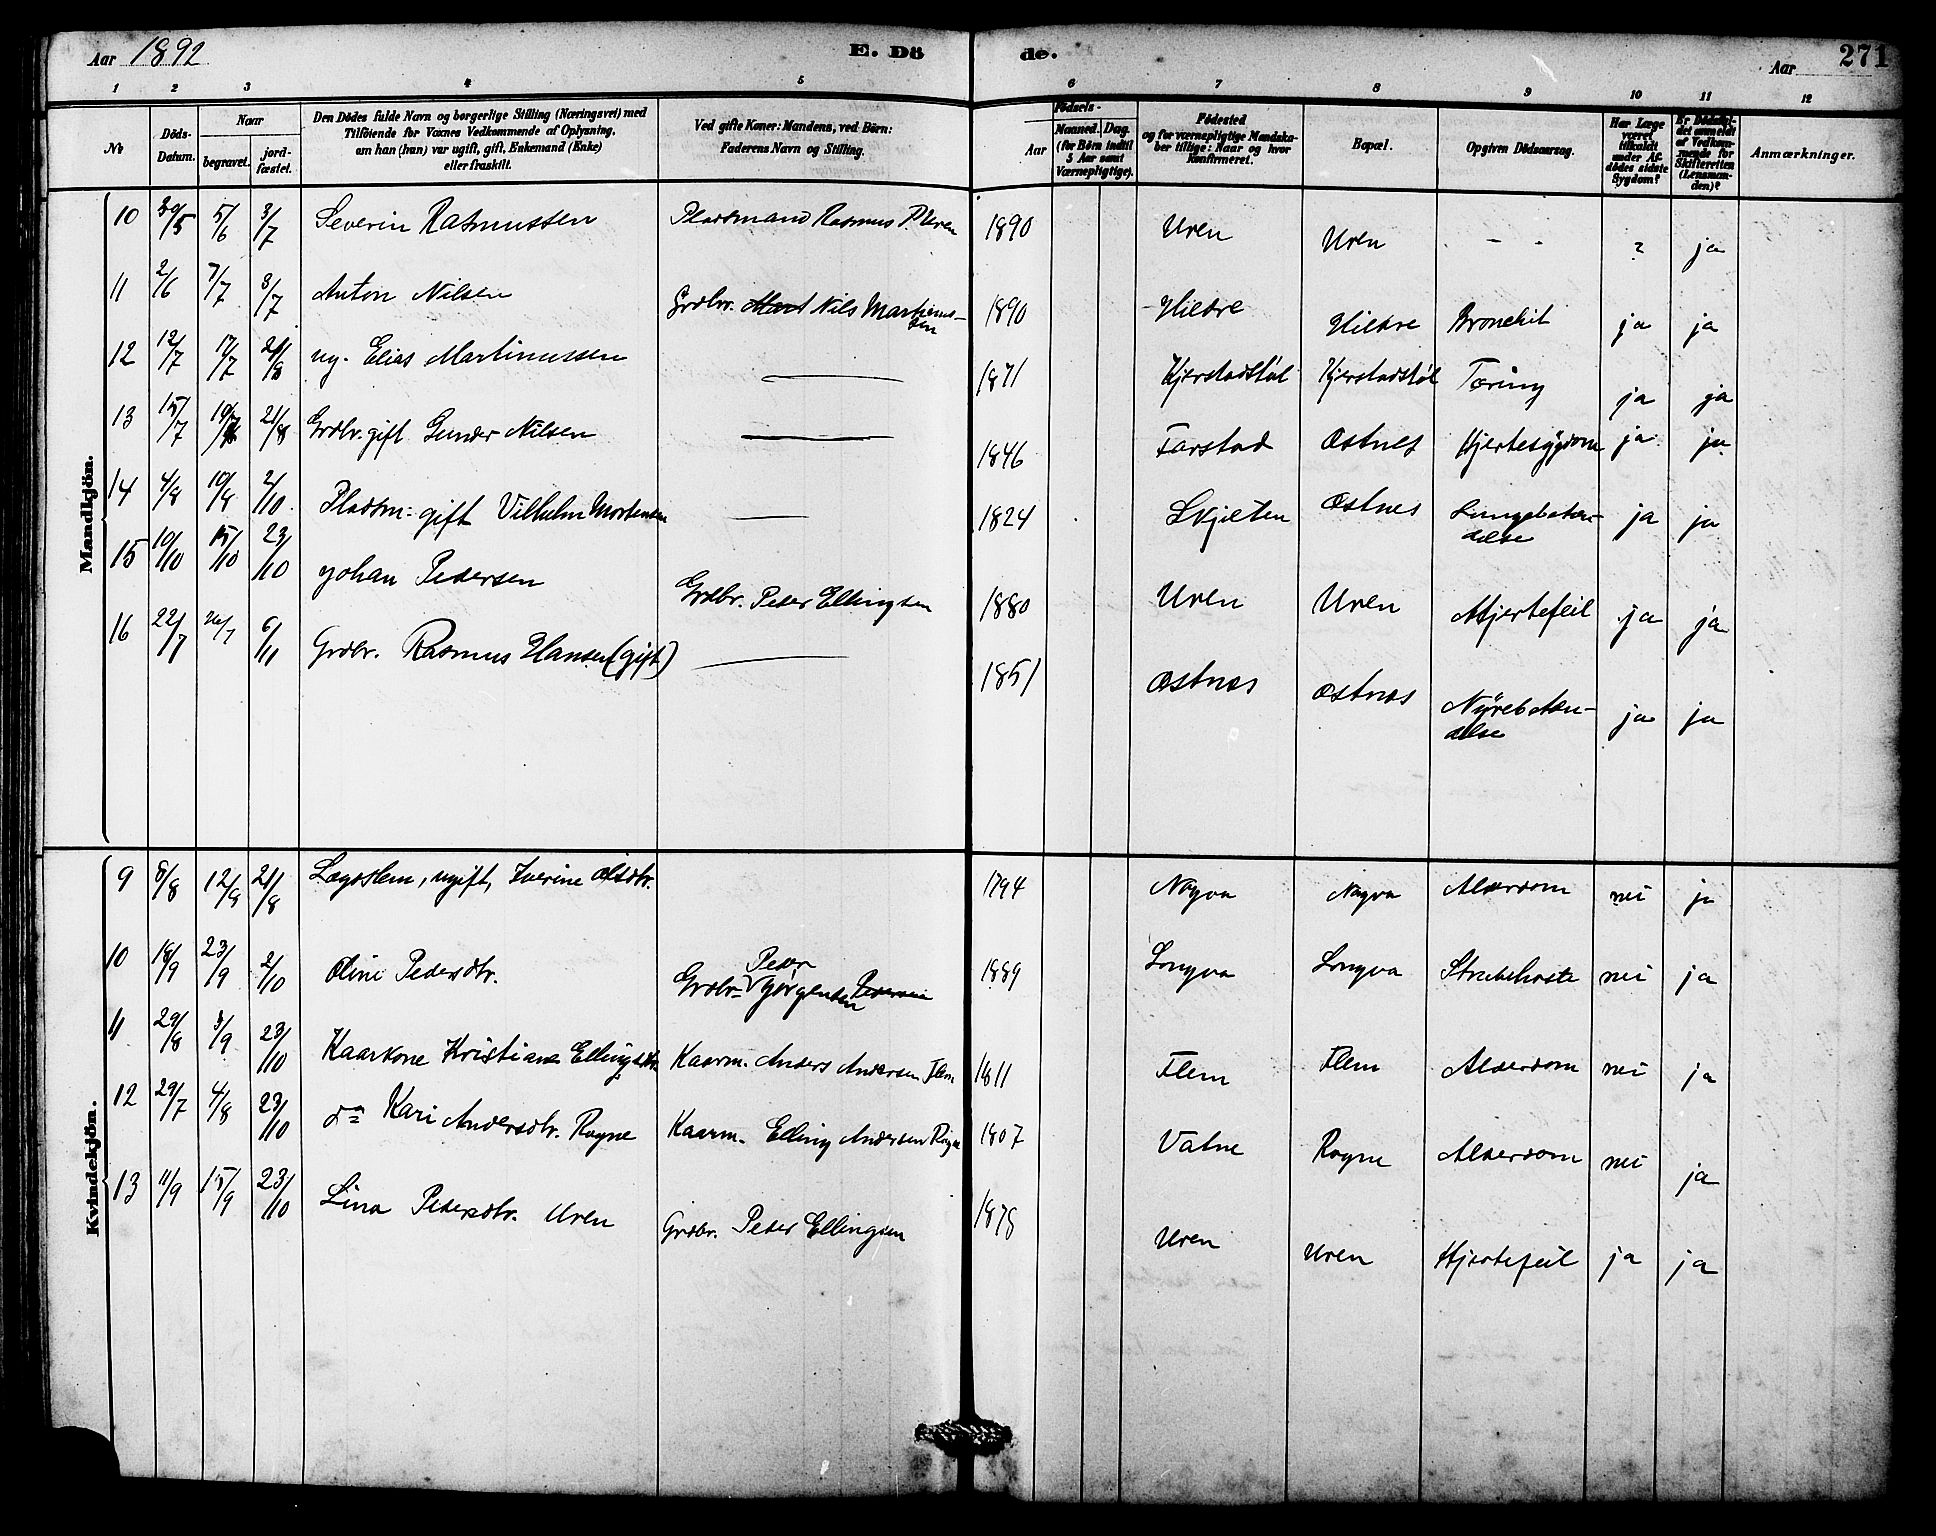 Aar 1892
E. Dö de.
Aar
271
1 2 3 4 5 6 7 8 9 10 11 12
No
Döds-Datum.
Naar begravet. jordfæstet.
Den Dödes fulde Navn og borgerlige Stilling (Næringsvei) med
Tilföiende for Voxnes Vedkommende af Oplysning,
om han (hun) var ugift, gift, Enkemand (Enke)
eller fraskilt.
Ved gifte Koner: Mandens, ved Börn:
Faderens Navn og Stilling.
Födsels-
Aar
Maaned. Dag.
(for Börn indtil
5 Aar samt
Værnepligtige).
Födested
og for værnepligtige Mandskaber
tillige: Naar og hvor
Konfirmeret.
Bopæl.
Opgiven Dödsaarsag.
Har Læge
været
tilkaldt
under Afdödes
sidste
Sygdom?
Er Dödsfaldet
anmeldt
af Vedkommende
for
Skifteretten
(Lensmanden)?
Anmærkninger.
Mandkjön.
10 30/5 5/6 3/7 Severin Rasmussen Pladsmand Rasmus P. Uren 1890 Uren Uren - - ja
11 2/6 7/7 3/7 Anton Nilsen Grdbr. Nils Martinussen 1890 Hildre Hildre Bronchit ja ja
12 12/7 17/7 21/8 ug. Elias Martinussen — 1871 Kjerstadstøl Kjerstadstøl Tæring ja ja
13 15/7 21/8 Grdbr. gift Gunder Nilsen — 1846 Farstad Østnes Hjertesygdom ja ja
14 4/8 10/8 2/10 Pladsm: gift Vilhelm Mortensen — 1824 Skjelten Østnes Lungebetændelse ja ja
15 10/10 15/10 23/10 Johan Pedersen Grdbr. Peder Ellingsen 1880 Uren Uren Hjertefeil ja ja
16 22/7 26/7 6/11 Grdbr. Rasmus Hansen (gift) — 1851 Østnes Østnes Nyrebetændelse ja ja
Kvindekjön.
9 8/8 12/8 21/8 Lægdslem, ugift, Iverine Olsdtr. 1794 Nogva Nogva Alderdom nei ja
10 18/9 23/9 2/10 Oline Pedersdtr. Grdbr. Peder Jørgensen Pedersen 1889 Longva Longva Strubehoste nei ja
11 29/8 3/9 23/10 Kaarkone Kristiane Ellingsdtr. Kaarm. Anders Andersen Flem 1811 Flem Flem Alderdom nei ja
12 29/7 4/8 23/10 do Kari Andersdtr. Rogne Kaarm. Elling Andersen Rogne 1807 Vatne Rogne Alderdom nei ja
13 11/9 15/9 23/10 Lina Pedersdtr. Uren Grdbr. Peder Ellingsen 1878 Uren Uren Hjertefeil ja ja